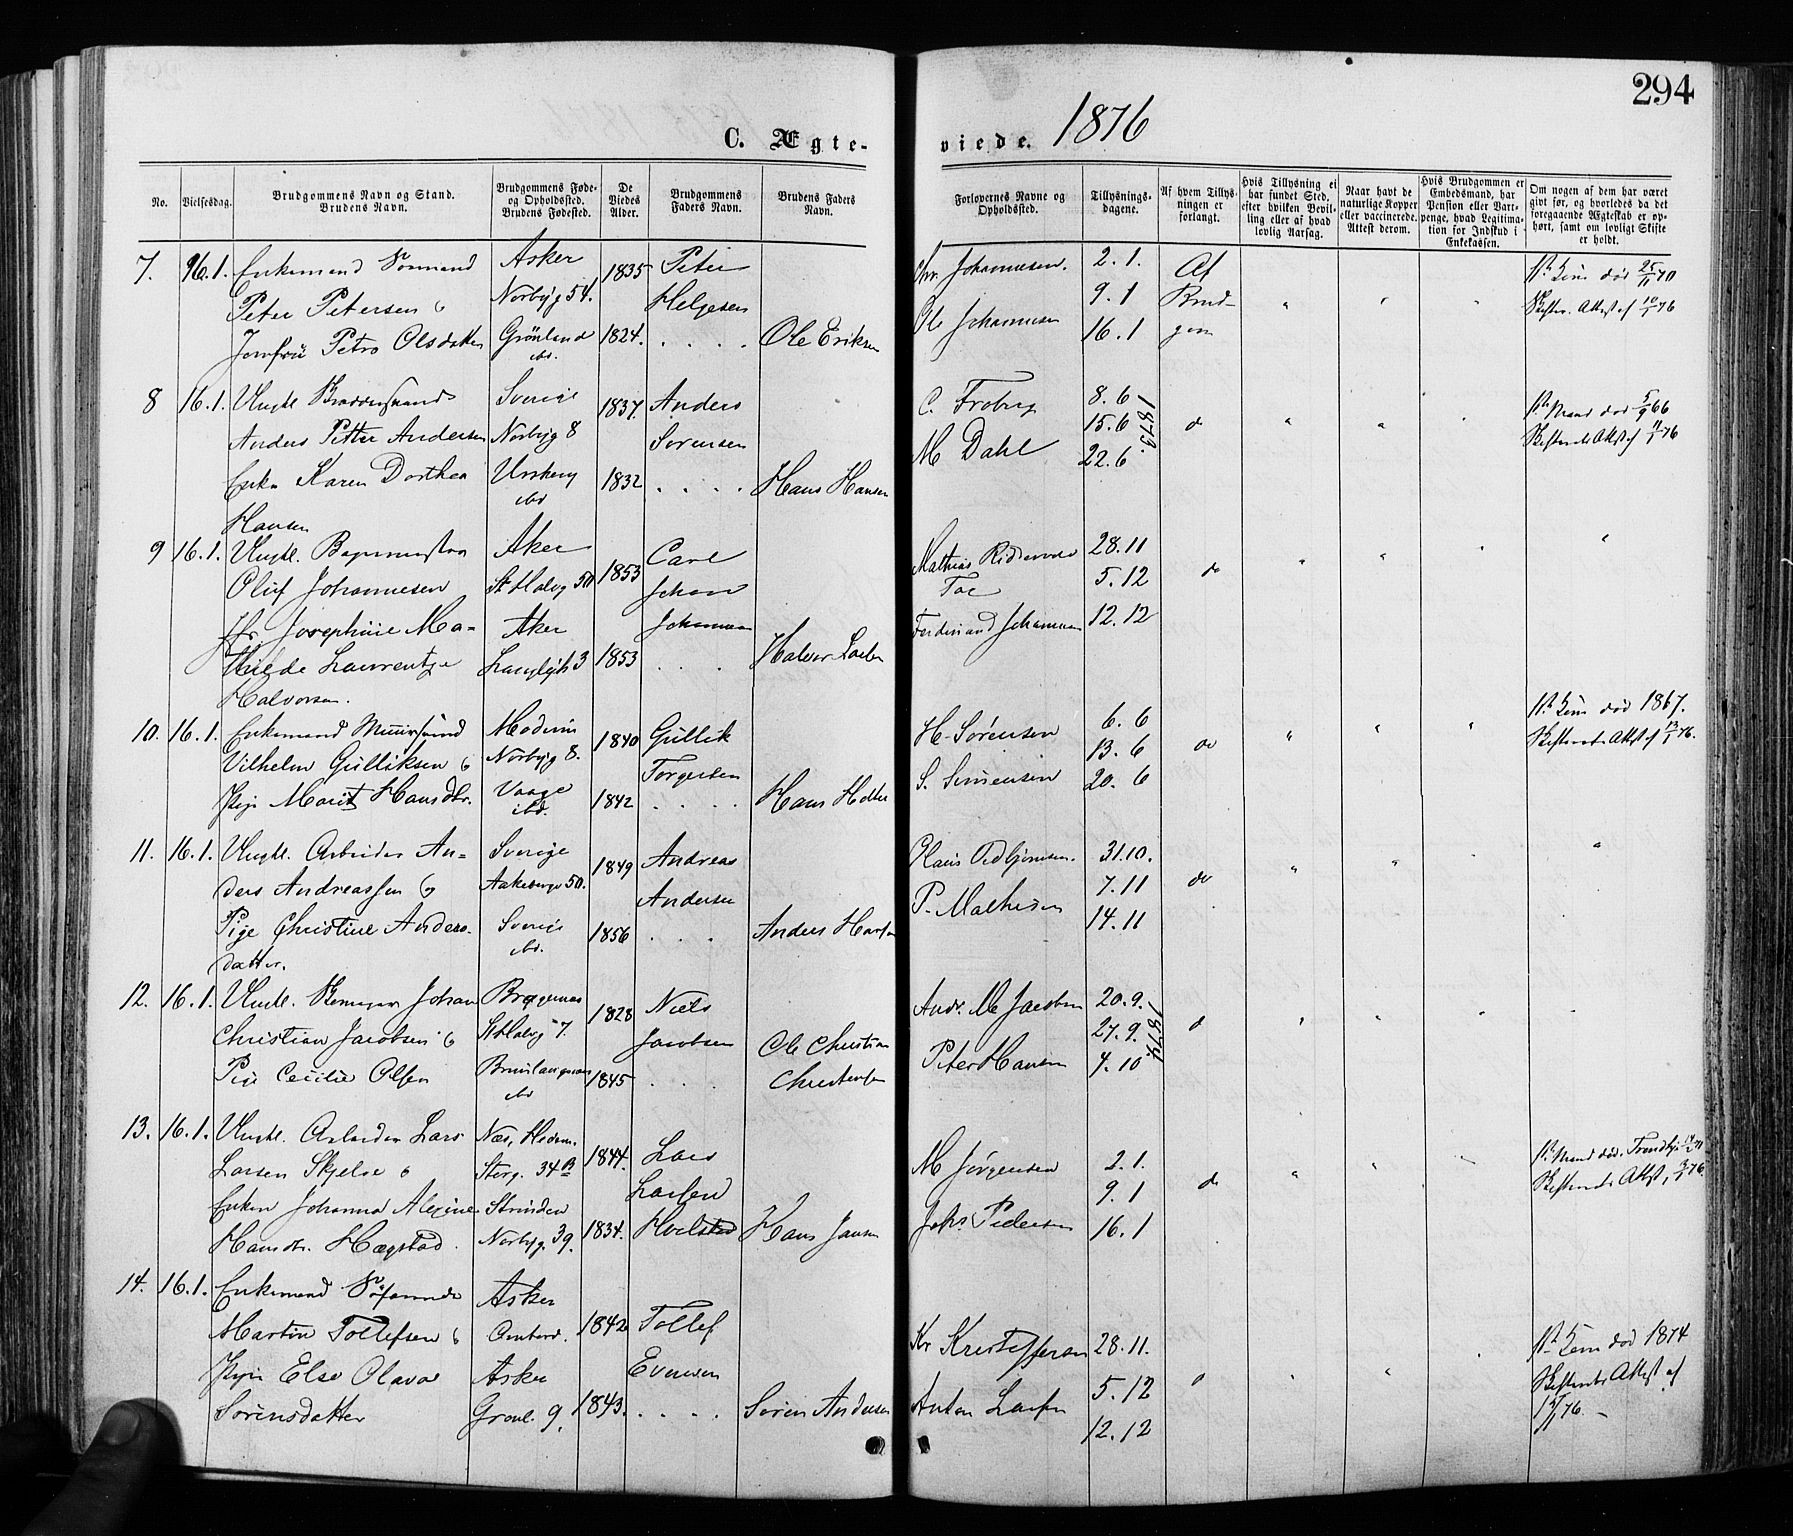 294
C. Ægteviede. 1876
No.
Vielsesdag.
Brudgommens Navn og Stand.
Brudens Navn.
Brudgommens Føde-
og Opholdssted.
Brudens Fødested.
De
Viedes
Alder.
Brudgommens
Faders Navn.
Brudens Faders
Navn.
Forlovernes Navne og
Opholdssted.
Tillysnings-
dagene.
Af hvem Tillys-
ningen er
forlangt.
Hvis Tillysning ei
har fundet Sted,
efter hvilken Bevil-
ling eller af hvad
lovlig Aarsag.
Naar havt de
naturlige Kopper
eller vaccinerede.
Attest derom.
Hvis Brudgommen er
Embedsmand, har
Pension eller Vart-
penge, hvad Legitima-
tion for Indskud i
Enkekassen.
Om nogen af dem har været
gift før, og hvorledes da det
foregaaende Ægteskab er op-
hørt, samt om lovligt Skifte
er holdt.
7. 16.1. Enkemand
Peter Petersen
Jomfru Petra Olsdatter
Asker
Norbyg 54.
Grönland
ibd.
1835
1824.
Peter
Helgesen
Ole Eriksen
Chr. Johannesen.
Ole Johannesen
2.1.
9.1
16.1
Af
Brud-
gom
død 25/11 70
Attest af 10/1 76
8 16.1. Ungkl.
Anders Petter Andersen
Enke Karen Dorthea
Hansen
Sverige
Norbyg 8
Urskoug
ibd
1837.
1832
Anders
Sorensen
Hans Hansen
C. Froberg
M Dahl
8.6
15.6
22.6
1873.
do
Mand død 5/9 66
Attest af 11/1 76
9 16.1. Ungkl.
Oluf Johannesen
Jfr. Josephine Ma-
thilde Laurentze
Halvorsen.
Aker
St Halvg 50
Aker
Langlgt 3
1853
1853
Carl
Johan
Johannesen
Halvor
Mathias
Foss
Ferdinand Johannesen
28.11
5.12
12.12
do
10. 16.1. Enkemand Muursvend
Vilhelm Gulliksen
Pige Marit Hansdtr.
Modum
Norbyg 8.
Vaage
ibd.
1840
1842
Gullik
Torgersen
Hans
H. Sørensen
S. Simensen
6.6
13.6
20.6
do
død 1867.
Attest af 13/1 76.
11. 16.1. Ungkl. Arbeider An-
ders Andreassen
Pige Christine Anders-
datter.
Sverige
Aakebergv 50.
Sverige
ibd.
1849
1856
Andreas
Andersen
Anders
Olaus
P. Mathisen
31.10.
7.11
14.11
do
12. 16.1. Ungkl. Johan
Christian Jacobsen
Pige Cecilie Olsen
Bragernes
St Halvg 7.
ibd
1828
1845
Niels
Jacobsen
Ole Christian
Christensen
Andr. M Jacobsen
Peter Hansen
20.9.
27.9.
4.10
1874.
do
13. 16.1. Ungkl. Arbeider Lars
Larsen Skjelse
Enken Johanna Alexine
Hansdtr. Hægstad.
Næs, Hedem.
Storg. 34 B
Strinden
Norbyg. 39.
1844.
1834.
Lars
Larsen
Hans Jansen
M Jørgensen
Johs Pedersen
2.1.
9.1
16.1
do
Mand død. Trondhj.
14. 16.1. Enkemand
Martin Tollefsen
Pige Else Olava
Sörensdatter
Asker
Asker
Gronl. 9.
1842
1843.
Tollef
Evensen
Soren Andersen
Kr Kristoffersen
Anton Larsen
28.11.
5.12
12.12
død 1874
Attest af